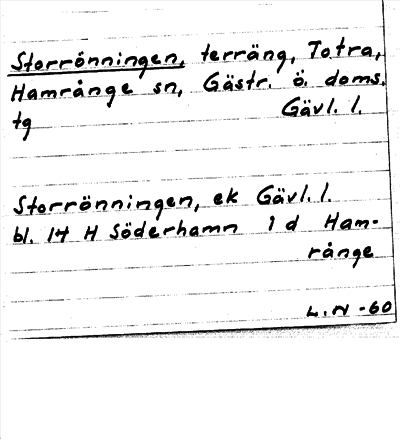 Storrönningen, terräng, Totra,
Hamrånge sn, Gästr. ö. doms.
tg Gävl. l.
Storrönningen, ek Gävl. l.
bl. 14 H Söderhamn 1 d Ham-
rånge
L. N -60